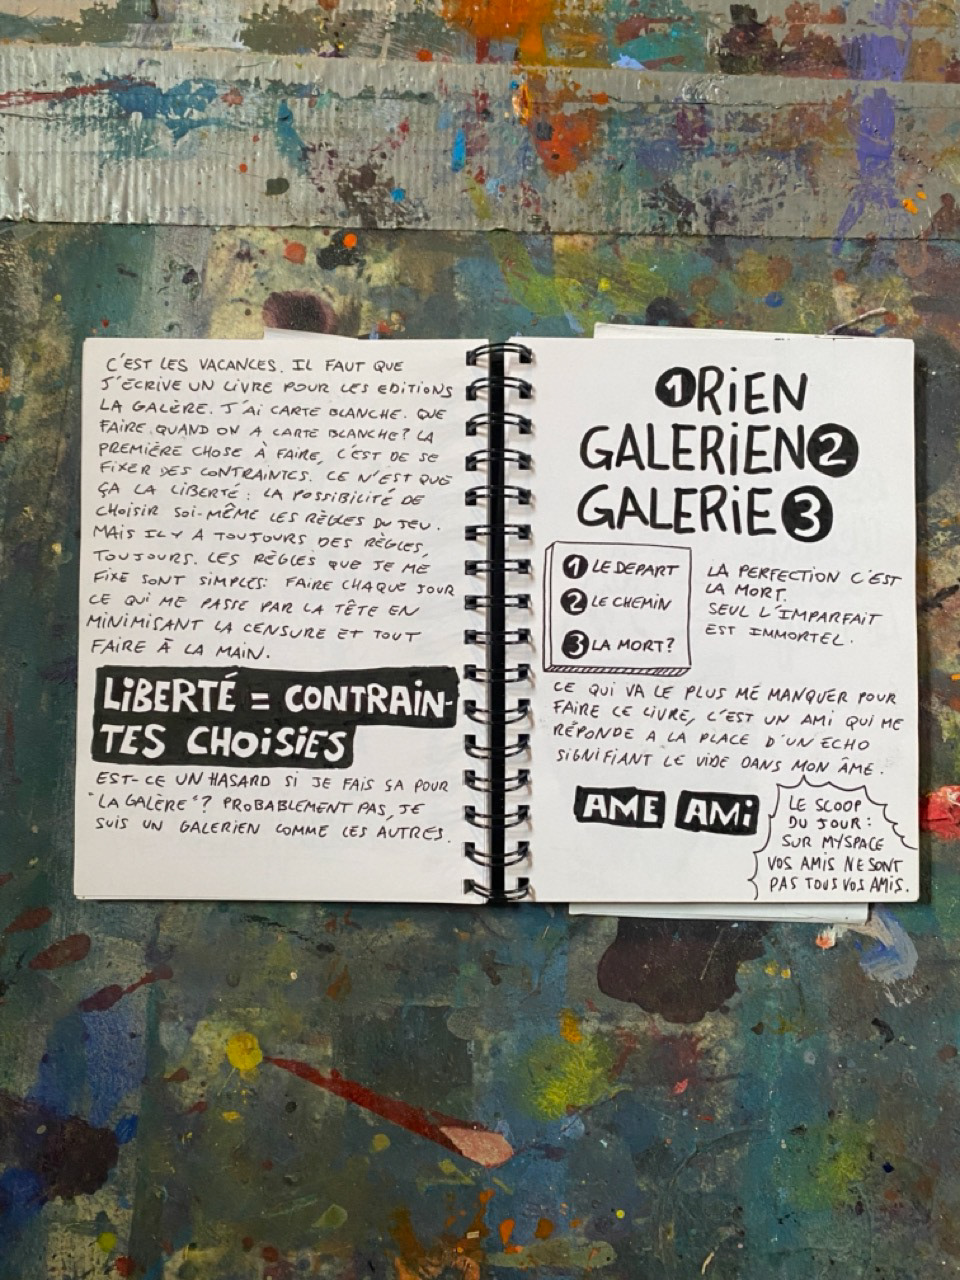 C'EST LES VACANCES. IL FAUT QUE
J'ÉCRIVE UN LIVRE POUR LES EDITIONS
LA GALÈRE. J'AI CARTE BLANCHE. QUE
FAIRE QUAND ON A CARTE BLANCHE? LA
PREMIÈRE CHOSE À FAIRE, C'EST DE SE
FIXER DES CONTRAINTES. CE N'EST QUE
ÇA LA LIBERTÉ : LA POSSIBILITÉ DE
CHOISIR SOI-MÊME LES RÈGLES DU JEU.
MAIS IL Y A TOUJOURS DES RÈGLES,
TOUJOURS. LES RÈGLES QUE JE ME
FIXE SONT SIMPLES: FAIRE CHAQUE JOUR
CE QUI ME PASSE PAR LA TÊTE EN
MINIMISANT LA CENSURE ET TOUT
FAIRE À LA MAIN.
LIBERTÉ = CONTRAIN-
TES CHOISIES
EST-CE UN HASARD SI JE FAIS ÇA POUR
"LA GALÈRE"? PROBABLEMENT PAS, JE
SUIS UN GALERIEN COMME LES AUTRES.
1 RIEN
GALERIEN 2
GALERIE 3
1 LE DEPART
2 LE CHEMIN
3 LA MORT?
LA PERFECTION C'EST
LA MORT.
SEUL L'IMPARFAIT
EST IMMORTEL.
CE QUI VA LE PLUS ME MANQUER POUR
FAIRE CE LIVRE, C'EST UN AMI QUI ME
RÉPONDE A LA PLACE D'UN ECHO
SIGNIFIANT LE VIDE DANS MON ÂME.
AME AMI
LE SCOOP
DU JOUR :
SUR MYSPACE
VOS AMIS NE SONT
PAS TOUS VOS AMIS.